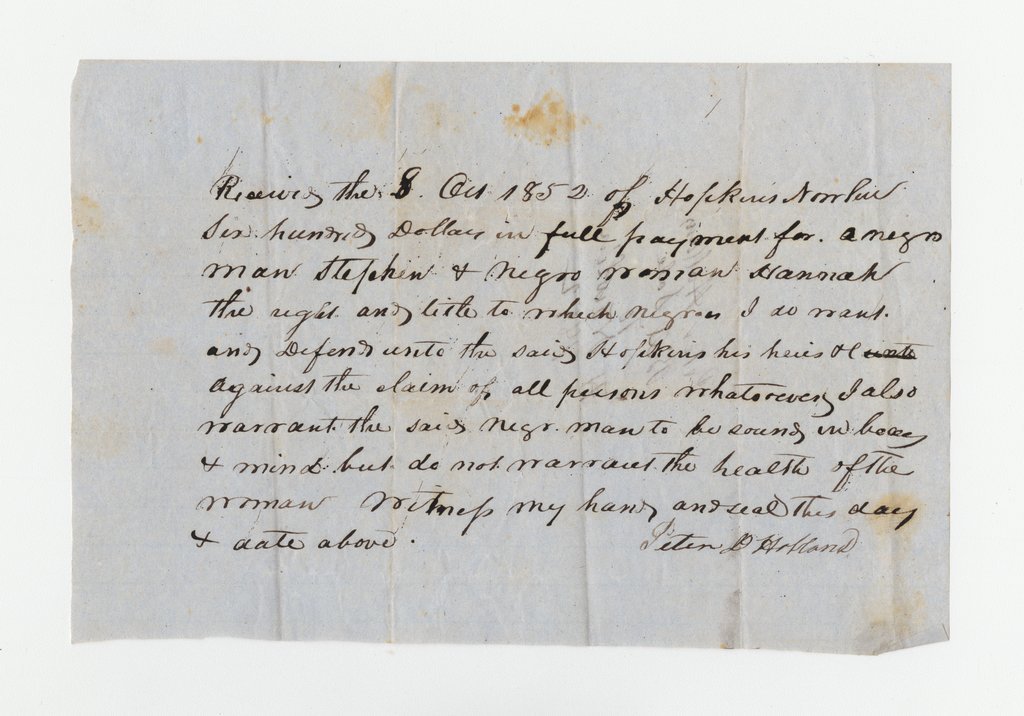 Received the 8. Oct 1852 of Hopkins Nowlin
Six hundred Dollars in full payment for. a negro
man Stephen & Negro woman Hannah
the right and title to which negroes I do warrt.
and Defend unto the said Hopkins his heirs &c unto
against the claim of all persons whatsoever, I also
warrant the said negr. man to be sound in body
& mind but do not warrant the health of the
woman Witness my hand and seal this day
& date above.
Peter D Holland